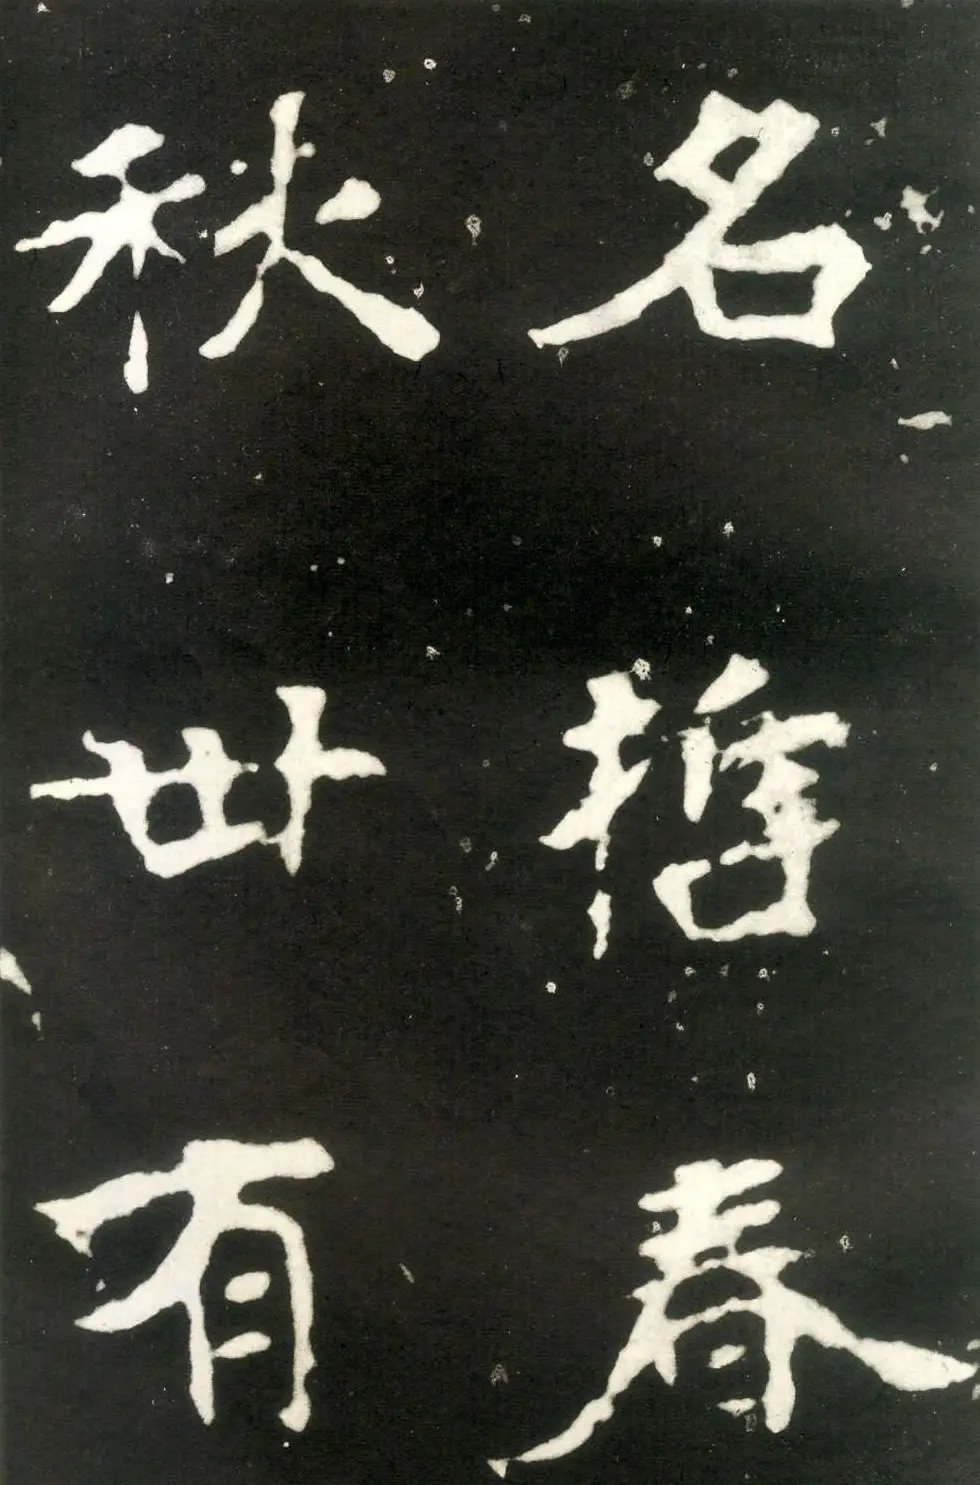 名哲春
秋世有